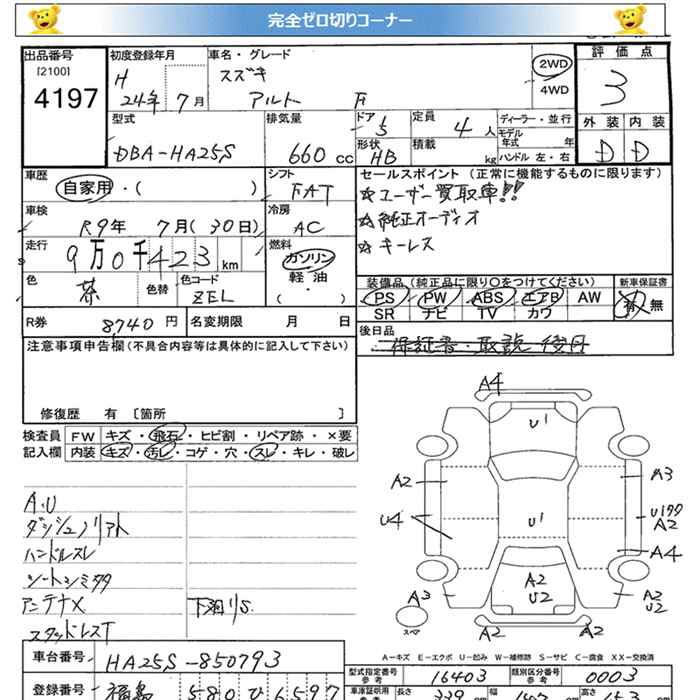 完全ゼロ切りコーナー
出品番号
[2100]
4197
初度登録年月
H
24年 7月
車名・グレード
スズキ
アルト F
2WD
4WD
評価点
3
外装 内装
D D
型式
DBA-HA25S
排気量
660 cc
ドア
5
形状
HB
定員
4 人
積載
kg
ディーラー・並行
モデル年式 年
ハンドル 左・右
車歴
自家用・( )
シフト
FAT
車検
R9年 7月(30日)
冷房
AC
走行
9万0千423 km
燃料
ガソリン
軽油
・
( )
色
茶
色替
色コード
ZEL
セールスポイント (正常に機能するものに限ります)
☆ユーザー買取車!!
☆純正オーディオ
☆キーレス
装備品 (純正品に限り○をつけてください)
PS PW ABS エアB AW
SR ナビ TV カワ
新車保証書
有 無
R券 8740 円
名変期限 月 日
後日品
保証書・取説 後日
注意事項申告欄(不具合内容等は具体的に記入して下さい)
修復歴 有 〔箇所 〕
検査員
記入欄
FW キズ・飛石・ヒビ割・リペア跡・×要
内装 キズ・汚レ・コゲ・穴・スレ・キレ・破レ
A.U
ハンドルスレ
アンテナX
スタッドレスT
下廻りS
A4
U1
A2
A3
U4
U1
A2
A4
A3
A2
U2
A2
U2
A2
A2
スペア
A-キズ E-エクボ U-凹み W-補修跡 S-サビ C-腐食 XX-交換済
車台番号 HA25S-850793
型式指定番号
参考
16403
類別区分番号
参考
0003
登録番号 福島 580 ひ 6597
車庫証明用
長さ
339
幅
高さ